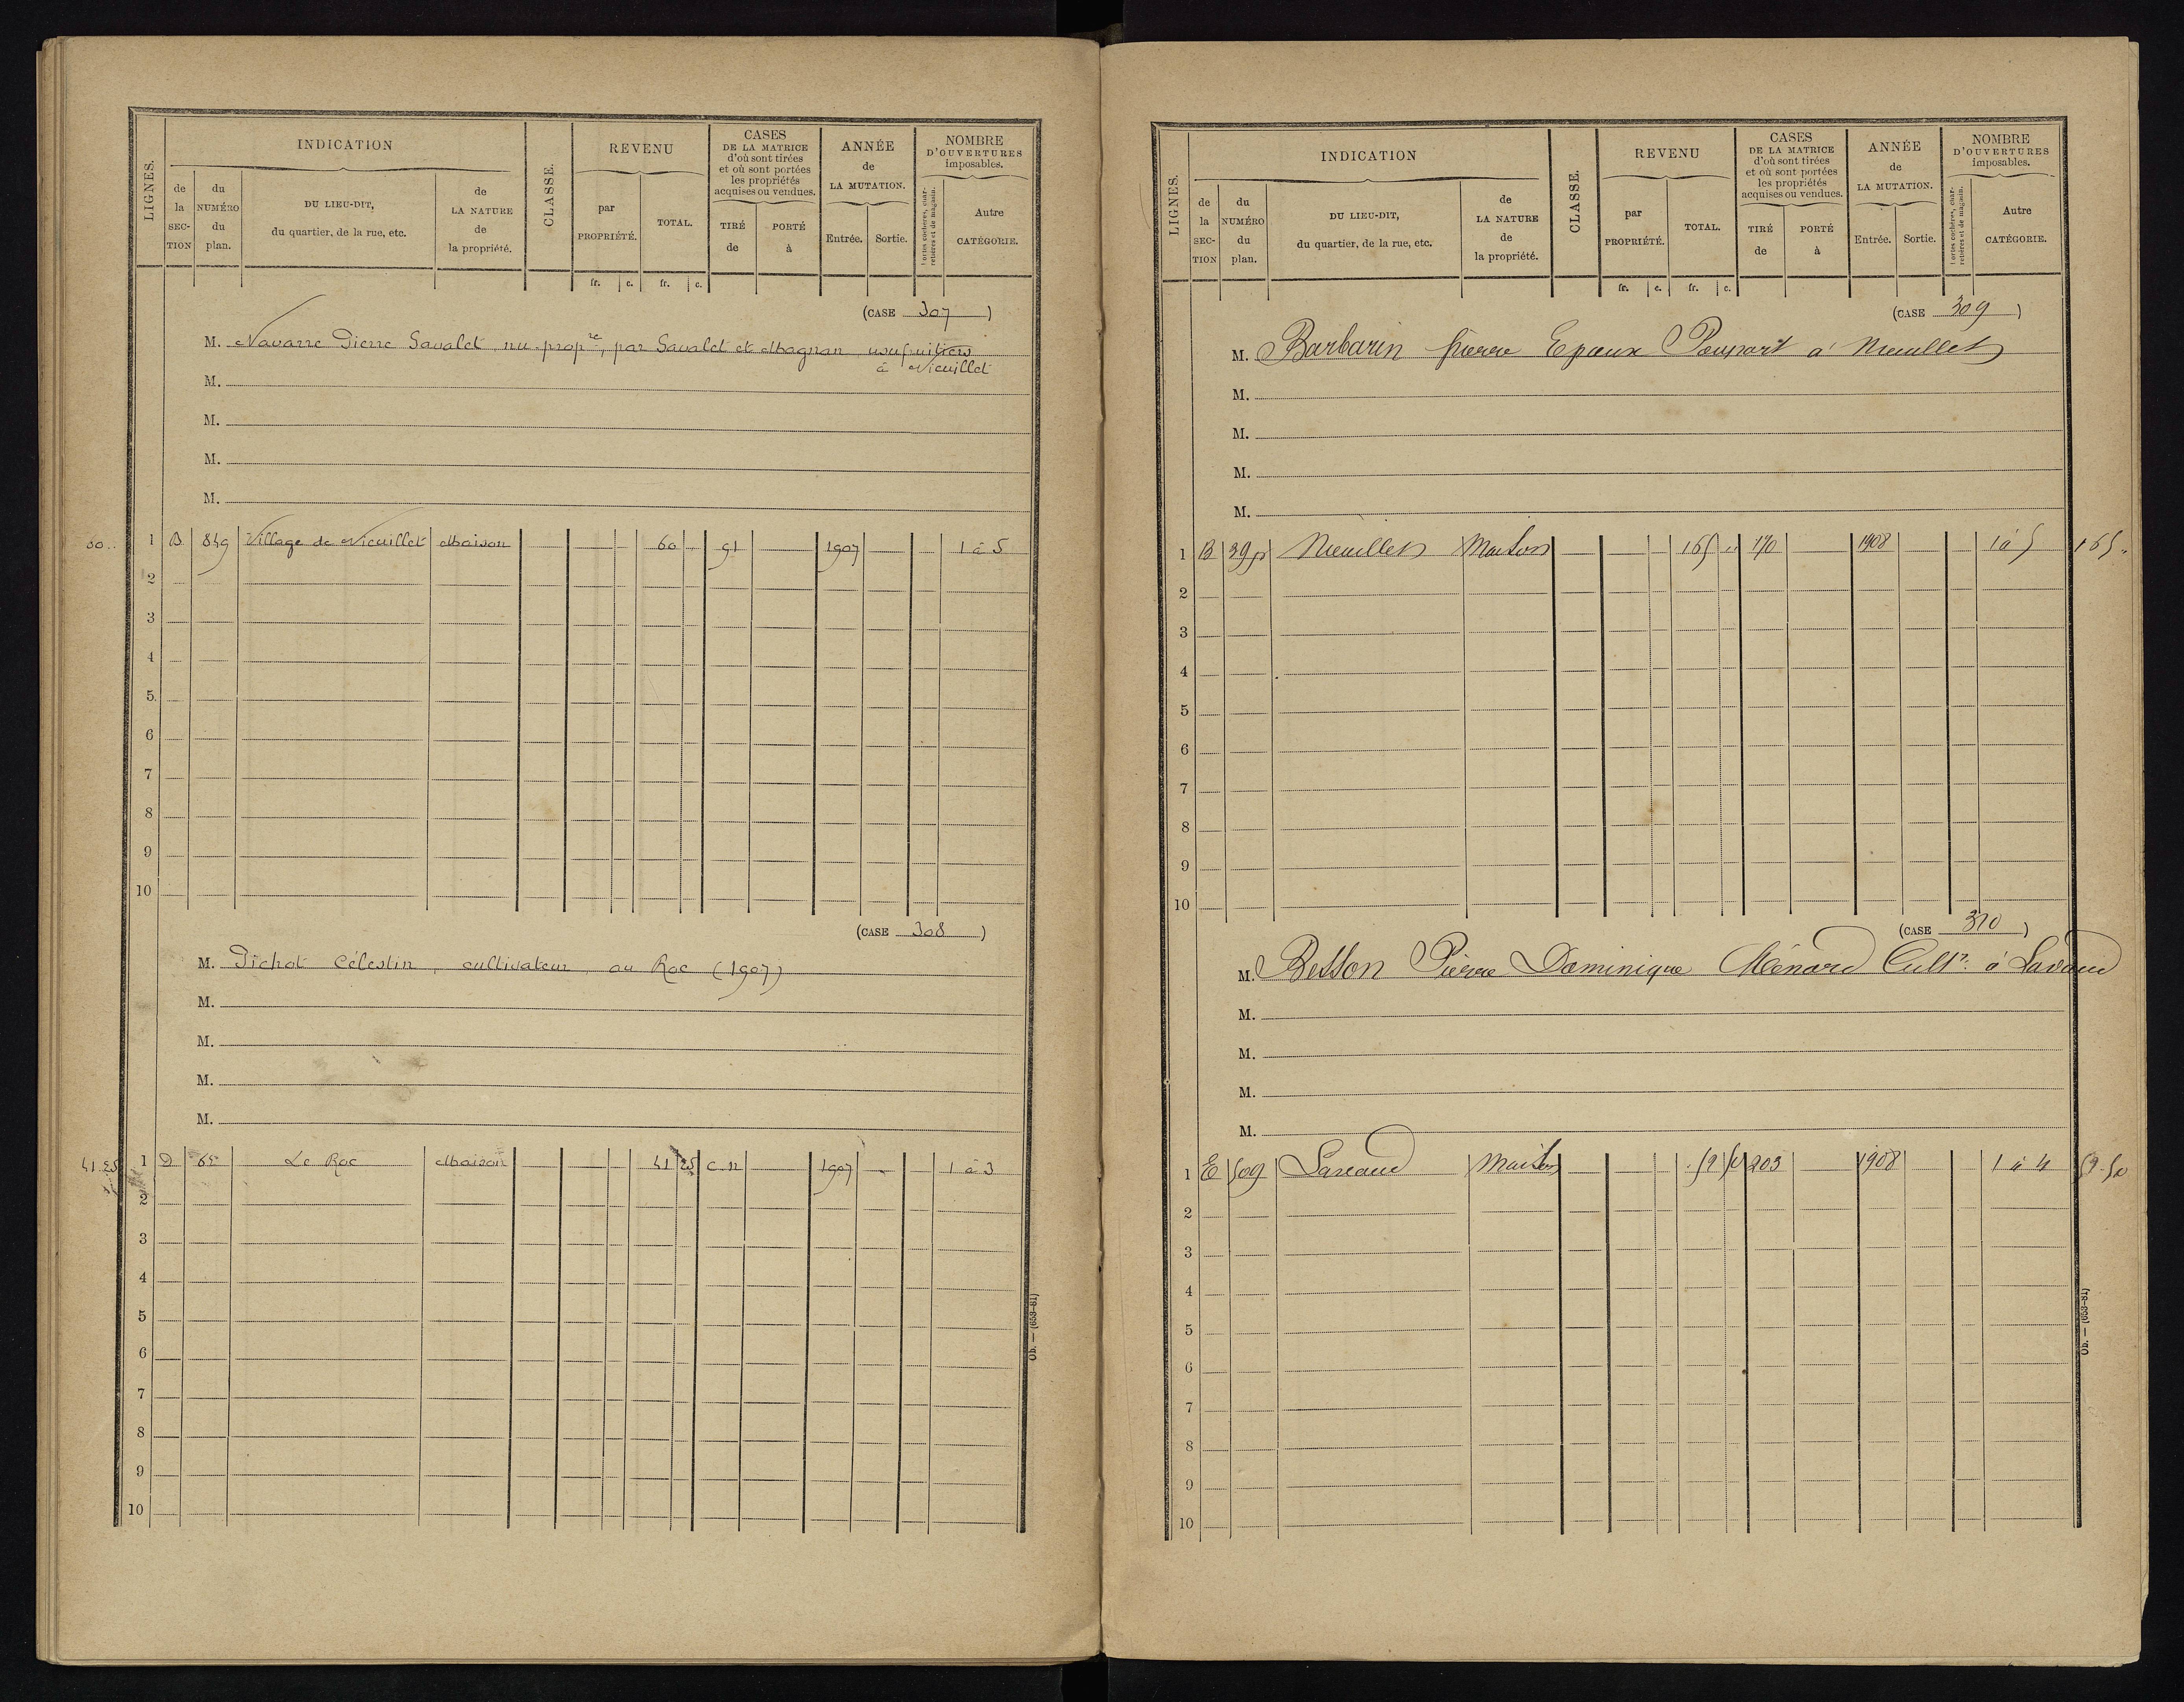 LIGNES.
INDICATION
de la SECTION
du NUMÉRO du plan.
DU LIEU-DIT, du quartier, de la rue, etc.
de LA NATURE de la propriété.
CLASSE.
REVENU
par PROPRIÉTÉ.
TOTAL.
CASES DE LA MATRICE d'où sont tirées et où sont portées les propriétés acquises ou vendues.
TIRÉ de
PORTÉ à
ANNÉE de LA MUTATION.
Entrée.
Sortie.
NOMBRE D'OUVERTURES imposables.
Portes cochères, charretières et de magasin.
Autre CATÉGORIE.
fr. c. fr. c.
(CASE 307)
M. Navarre Pierre Savalet, nu-propre, par Savalet et Magnan usufruitiers
à Nieuillet
M.
M.
M.
M.
1 B 849 Village de Nieuillet Maison 60 91 1907 1 à 5
2
3
4
5
6
7
8
9
10
(CASE 308)
M. Pichot Célestin, cultivateur, au Roc (1907)
M.
M.
M.
M.
41.25 1 D Le Roc Maison 41 25 c.n 1907 1 à 3
2
3
4
5
6
7
8
9
10
Ob. — (653-81)
LIGNES.
INDICATION
de la SECTION
du NUMÉRO du plan.
DU LIEU-DIT, du quartier, de la rue, etc.
de LA NATURE de la propriété.
CLASSE.
REVENU
par PROPRIÉTÉ.
TOTAL.
CASES DE LA MATRICE d'où sont tirées et où sont portées les propriétés acquises ou vendues.
TIRÉ de
PORTÉ à
ANNÉE de LA MUTATION.
Entrée.
Sortie.
NOMBRE D'OUVERTURES imposables.
Portes cochères, charretières et de magasin.
Autre CATÉGORIE.
fr. c. fr. c.
(CASE 309)
M. Barbarin pierre Epoux Poupart à Nieuillet
M.
M.
M.
M.
1 B 39p Nieuillet Maison 165 " 170 1908 1 à 5 165 "
2
3
4
5
6
7
8
9
10
(CASE 310)
M. Besson Pierre Dominique Ménard Cultr. à Lavaud
M.
M.
M.
M.
1 E 509 Lavaud Maison 52 50 203 1908 1 à 4 52.50
2
3
4
5
6
7
8
9
10
Ob. — (653-81)